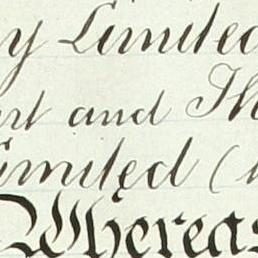 y Limited
and Th
Limited (
Whereas